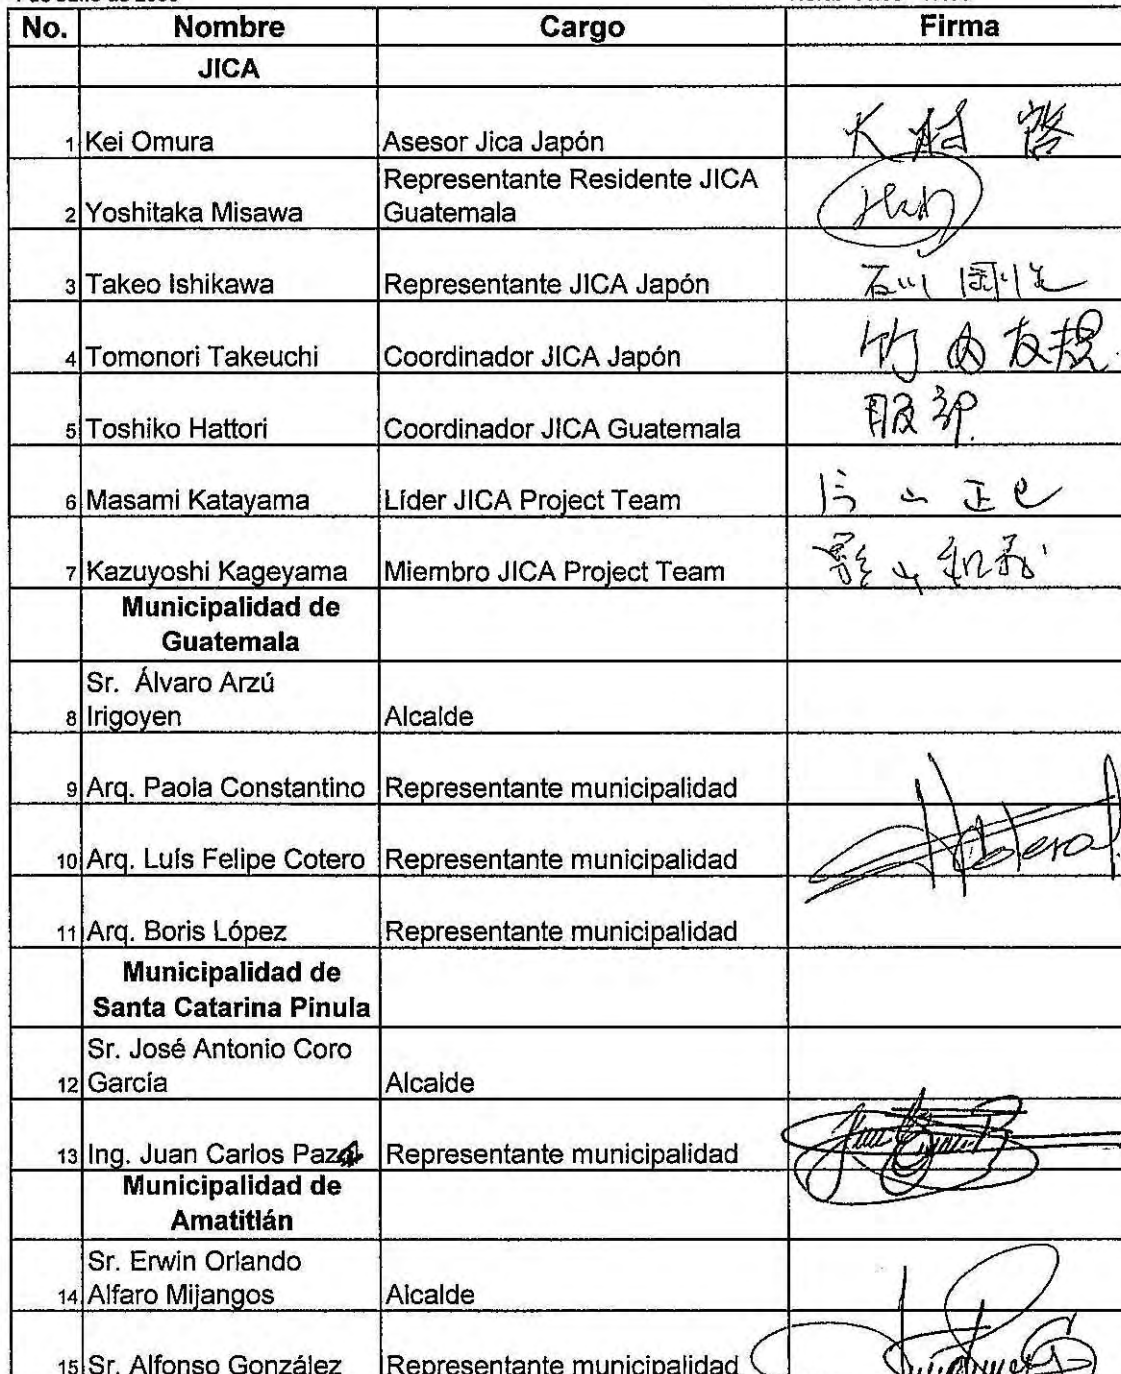 No. Nombre Cargo Firma
JICA
1 Kei Omura Asesor Jica Japón 大村 啓
Representante Residente JICA
2 Yoshitaka Misawa Guatemala
3 Takeo Ishikawa Representante JICA Japón 石川 剛生
4 Tomonori Takeuchi Coordinador JICA Japón 竹内友規
5 Toshiko Hattori Coordinador JICA Guatemala 服部
6 Masami Katayama Líder JICA Project Team 片山正巳
7 Kazuyoshi Kageyama Miembro JICA Project Team 影山
Municipalidad de
Guatemala
Sr. Álvaro Arzú
8 Irigoyen Alcalde
9 Arq. Paola Constantino Representante municipalidad
10 Arq. Luís Felipe Cotero Representante municipalidad
11 Arq. Boris López Representante municipalidad
Municipalidad de
Santa Catarina Pinula
Sr. José Antonio Coro
12 García Alcalde
13 Ing. Juan Carlos Paz Representante municipalidad
Municipalidad de
Amatitlán
Sr. Erwin Orlando
14 Alfaro Mijangos Alcalde
15 Sr. Alfonso González Representante municipalidad